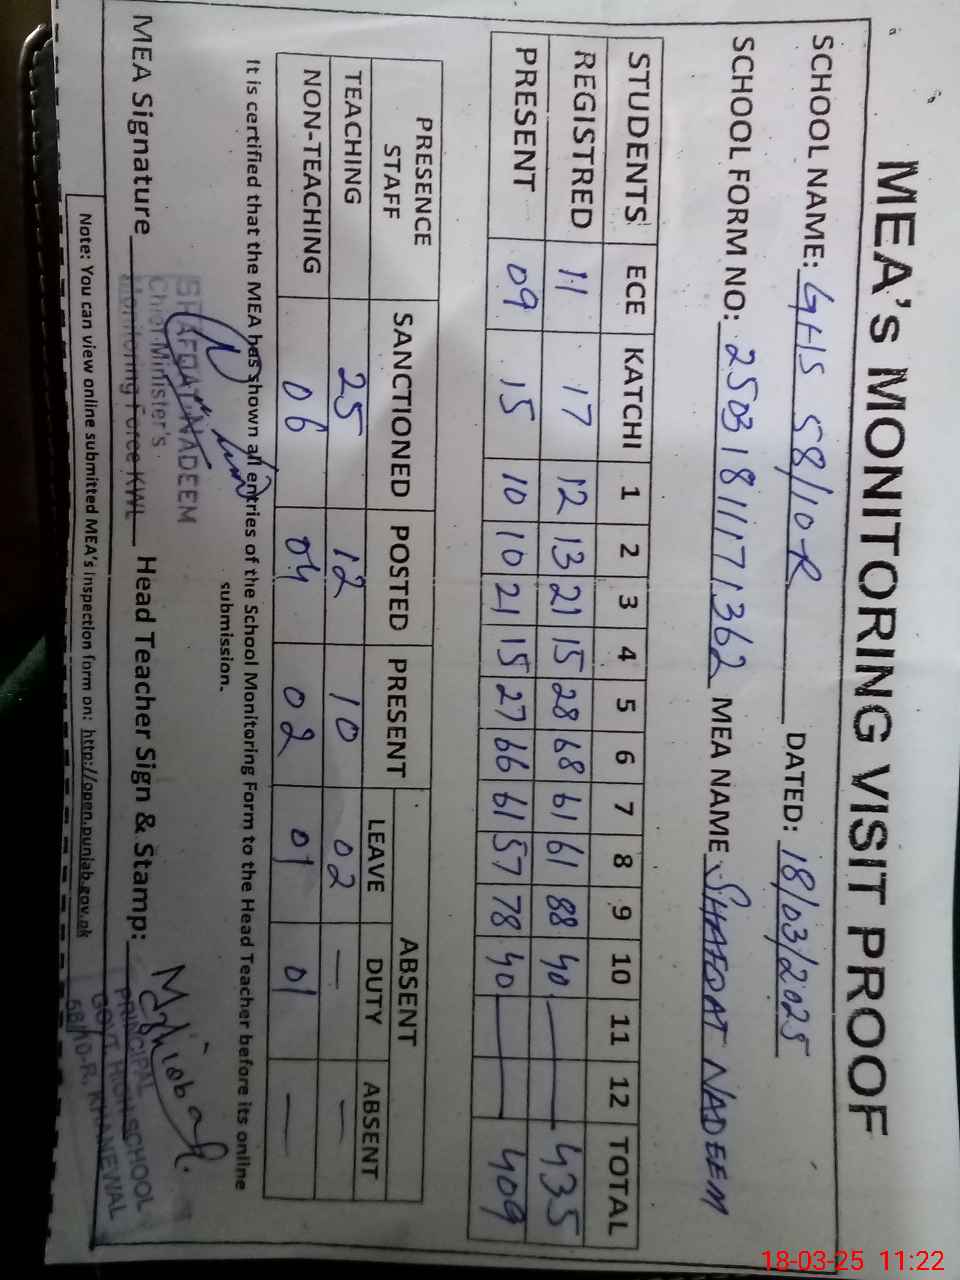 MEA's MONITORING VISIT PROOF
SCHOOL NAME: GHS 58/10-R DATED: 18/03/2025
SCHOOL FORM NO: 25031811171362 MEA NAME SHAFQAT NADEEM
STUDENTS ECE KATCHI 1 2 3 4 5 6 7 8 9 10 11 12 TOTAL
REGISTRED 11 17 12 13 21 15 28 68 61 61 88 40 — — 435
PRESENT 09 15 10 10 21 15 27 66 61 57 78 40 — — 409
PRESENCE STAFF SANCTIONED POSTED PRESENT ABSENT
LEAVE DUTY ABSENT
TEACHING 25 12 10 02 — —
NON-TEACHING 06 04 02 01 01 —
It is certified that the MEA has shown all entries of the School Monitoring Form to the Head Teacher before its online
submission.
SHAFQAT NADEEM
Chief Minister's
Monitoring Force KWL
MEA Signature Head Teacher Sign & Stamp:
PRINCIPAL
GOVT. HIGH SCHOOL
58/10-R. KHANEWAL
Note: You can view online submitted MEA's inspection form on: http://open.punjab.gov.pk
18-03-25 11:22